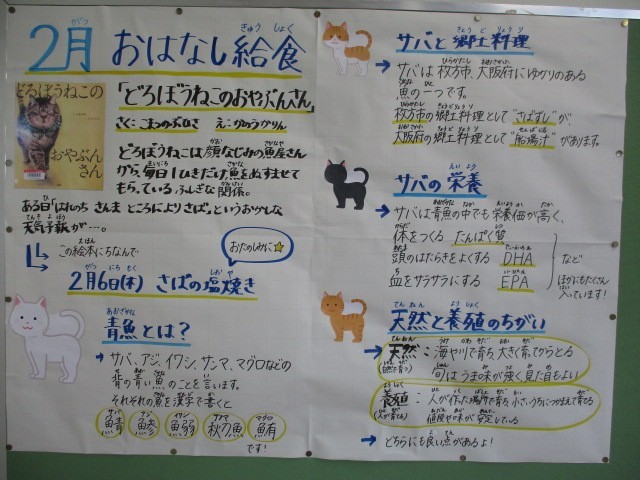 2月 おはなし給食
どろぼうねこの
おやぶん
さん
「どろぼうねこのおやぶんさん」
さく：こまつのぶひさ え：かのうかりん
どろぼうねこは顔なじみの魚屋さん
から、毎日1ぴきだけ魚をぬすませて
もらっているふしぎな関係。
ある日「はれのち さんま ところにより さば」というおかしな
天気予報が…。
この絵本にちなんで
おたのしみに☆
2月6日(木) さばの塩焼き
青魚とは？
サバ、アジ、イワシ、サンマ、マグロなどの
背の青い魚のことを言います。
それぞれの魚を漢字で書くと
サバ アジ イワシ サンマ マグロ
鯖 鯵 鰯 秋刀魚 鮪
です！
サバと郷土料理
サバは枚方市、大阪府にゆかりのある
魚の一つです。
枚方市の郷土料理として"さばずし"が、
大阪府の郷土料理として"船場汁"があります。
サバの栄養
サバは青魚の中でも栄養価が高く、
体をつくる たんぱく質
頭のはたらきをよくする DHA
血をサラサラにする EPA
など
ほかにもたくさん
入っています！
天然と養殖のちがい
天然：海や川で育ち、大きく育ってからとる
旬はうま味が強く見た目もよい
養殖：人が作った場所で育ち、小さいうちにつかまえて育てる
値段や味が安定している
どちらにも良い点があるよ！